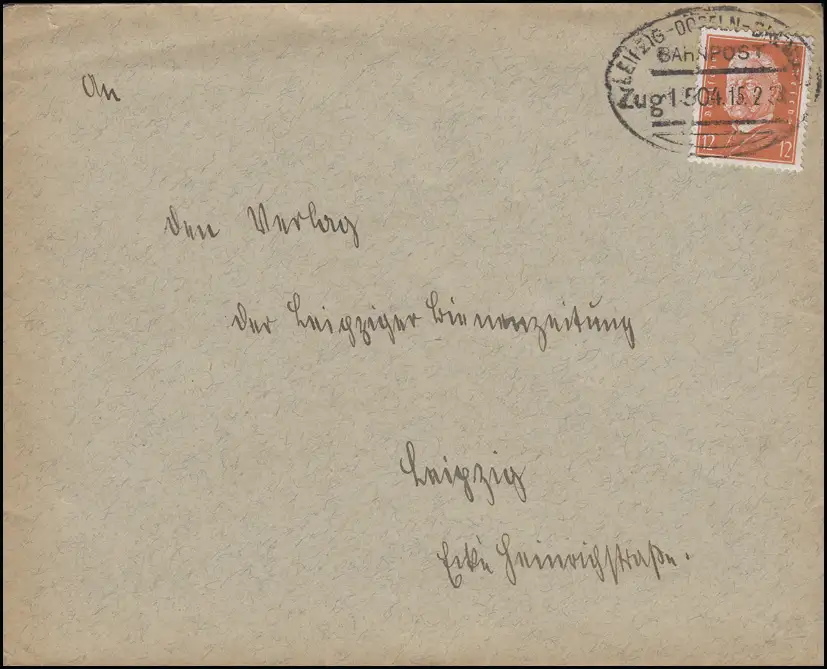 LEIPZIG-DÖBELN-
BAHNPOST
Zug 1504 15.2.
12 12
An
den Verlag
der Leipziger Bienenzeitung
Leipzig
Ecke Heinrichstraße.